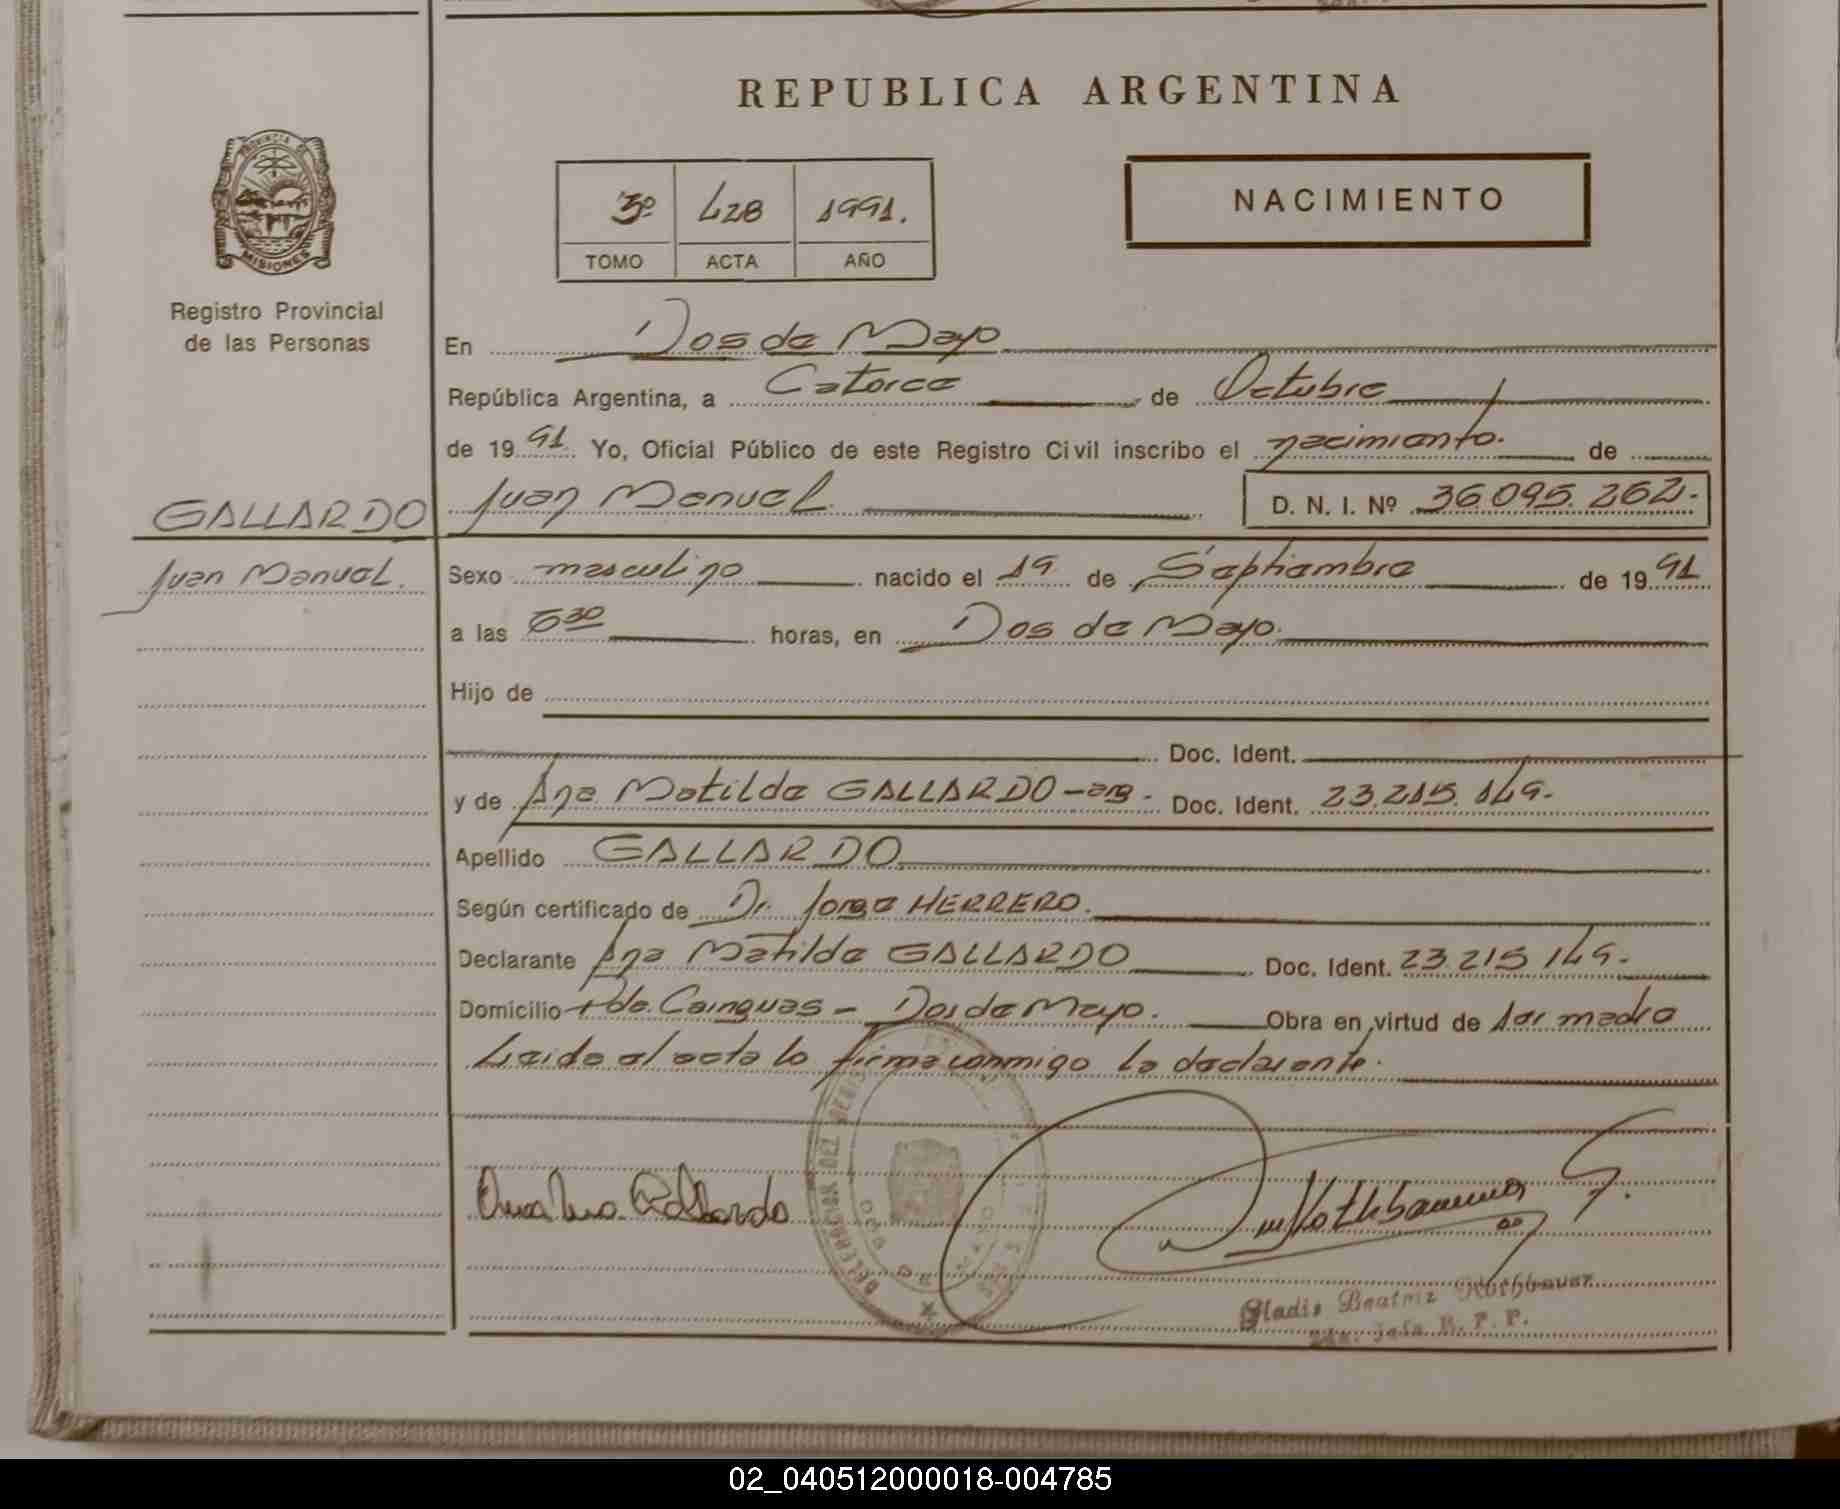 REPUBLICA ARGENTINA
PROVINCIA DE
MISIONES
Registro Provincial
de las Personas
3º 428 1991.
TOMO ACTA AÑO
NACIMIENTO
En Dos de Mayo
República Argentina, a Catorce de Octubre
de 1991. Yo, Oficial Público de este Registro Civil inscribo el nacimiento. de
GALLARDO
Juan Manuel.
Juan Manuel. D. N. I. Nº 36.095.262.-
Sexo masculino nacido el 19 de Septiembre de 1991
a las 6 30 horas, en Dos de Mayo.
Hijo de
Doc. Ident.
y de Ana Matilde GALLARDO -arg.- Doc. Ident. 23.215.149.-
Apellido GALLARDO
Según certificado de Dr. Jorge HERRERO.
Declarante Ana Matilde GALLARDO Doc. Ident. 23.215.149.-
Domicilio Pde. Cainguas - Dos de Mayo. Obra en virtud de ser madre
Leida el acta lo firma conmigo la declarante.
Gallardo
DELEGACION DEL
DOS DE MAYO
Gladis Beatriz Rothbauer
Jefe R. P. P.
02_040512000018-004785